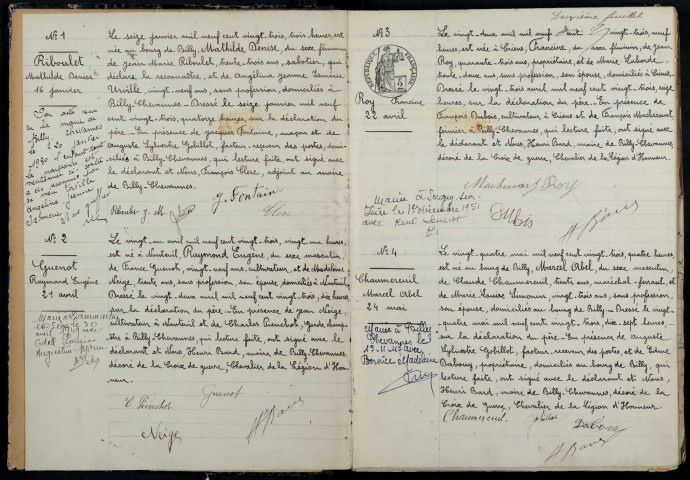 N° 1
Riboulet
Mathilde Denise
16 janvier
Le seize janvier mil neuf cent vingt-trois, trois heures, est
née au bourg de Billy, Mathilde Denise, du sexe féminin
de Jean Marie Riboulet, trente-trois ans, sabotier, qui
déclare la reconnaître, et de Angelina Jeanne Ismérie
vingt-neuf ans, sans profession, domiciliés à
Billy-Chevannes. Dressé le seize janvier mil neuf
cent vingt-trois, quatorze heures, sur la déclaration du
père. En présence de Jacques Fontaine, maçon et de
Auguste Sylvestre Gobillot, facteur-receveur des postes, domi-
ciliés à Billy-Chevannes, qui lecture faite, ont signé avec
le déclarant et Nous, François Clerc, adjoint au maire
de Billy-Chevannes.
Riboulet J. M.
J. Fontaine
Clerc
N° 2
Guenot
Raymond Eugène
21 avril
Le vingt-un avril mil neuf cent vingt-trois, vingt-une heures,
est né à Nanteuil, Raymond Eugène, du sexe masculin
de Franc Guenot, vingt-neuf ans, cultivateur, et de Madeleine
Neige, trente ans, sans profession, son épouse, domiciliés à Nanteuil.
Dressé le vingt-deux avril mil neuf cent vingt-trois, dix heures,
sur la déclaration du père. En présence de Jean Neige,
cultivateur à Nanteuil et de Charles Pienchot, Garde cham-
pêtre à Billy-Chevannes, qui lecture faite, ont signé avec le
déclarant et Nous, Henri Bard, maire de Billy-Chevannes,
décoré de la Croix de guerre, Chevalier de la Légion d'Hon-
neur.
Guenot
Neige
Deuxième feuillet
N° 3
RÉPUBLIQUE FRANÇAISE
Roy Francine
22 avril
Le vingt-deux avril mil neuf cent vingt-trois, neuf
heures, est née à Giens, Francine, du sexe féminin, de Jean
Roy, quarante-trois ans, propriétaire, et de Marie Laborde
trente-deux ans, sans profession, son épouse, domiciliés à Giens.
Dressé le vingt-deux avril mil neuf cent vingt-trois, seize
heures, sur la déclaration du père. En présence de
François Dubois, cultivateur à Giens et de François
fermier à Billy-Chevannes, qui lecture faite, ont signé avec
le déclarant et Nous, Henri Bard, maire de Billy-Chevannes
décoré de la Croix de guerre, Chevalier de la Légion d'Honneur.
Roy
Dubois
H Bard
Mariée à Sougy-sur-
Loire le 1er décembre 1951
avec René
N° 4
Chaumereuil
Marcel Abel
24 mai
Le vingt-quatre mai mil neuf cent vingt-trois, quatre heures
est né au bourg de Billy, Marcel Abel, du sexe masculin,
de Claude Chaumereuil, trente ans, maréchal-ferrant, et
de Marie Laure Simonin, vingt-trois ans, sans profession,
son épouse, domiciliés au bourg de Billy. Dressé le vingt-
quatre mai mil neuf cent vingt-trois, dix-sept heures,
sur la déclaration du père. En présence de Auguste
Sylvestre Gobillot, facteur-receveur des postes, et de Edme
propriétaire, domiciliés au bourg de Billy, qui
lecture faite, ont signé avec le déclarant et Nous,
Henri Bard, maire de Billy-Chevannes, décoré de la
Croix de Guerre, Chevalier de la Légion d'Honneur
Chaumereuil
H Bard